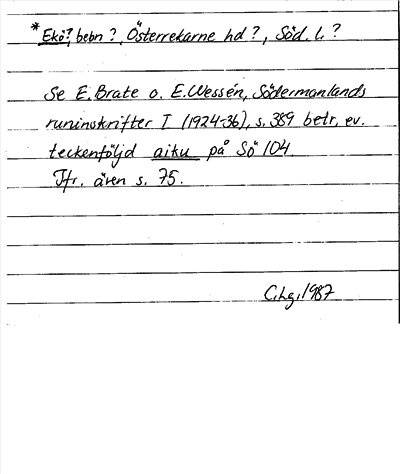 *Ekö?, bebn?, Österrekarne hd?, Söd. l.?
Se E. Brate o. E. Wessén, Södermanlands
runinskrifter I (1924-36), s. 389 betr. ev.
teckenföljd aiku på Sö 104.
Jfr. även s. 75.
C.Lg. 1987